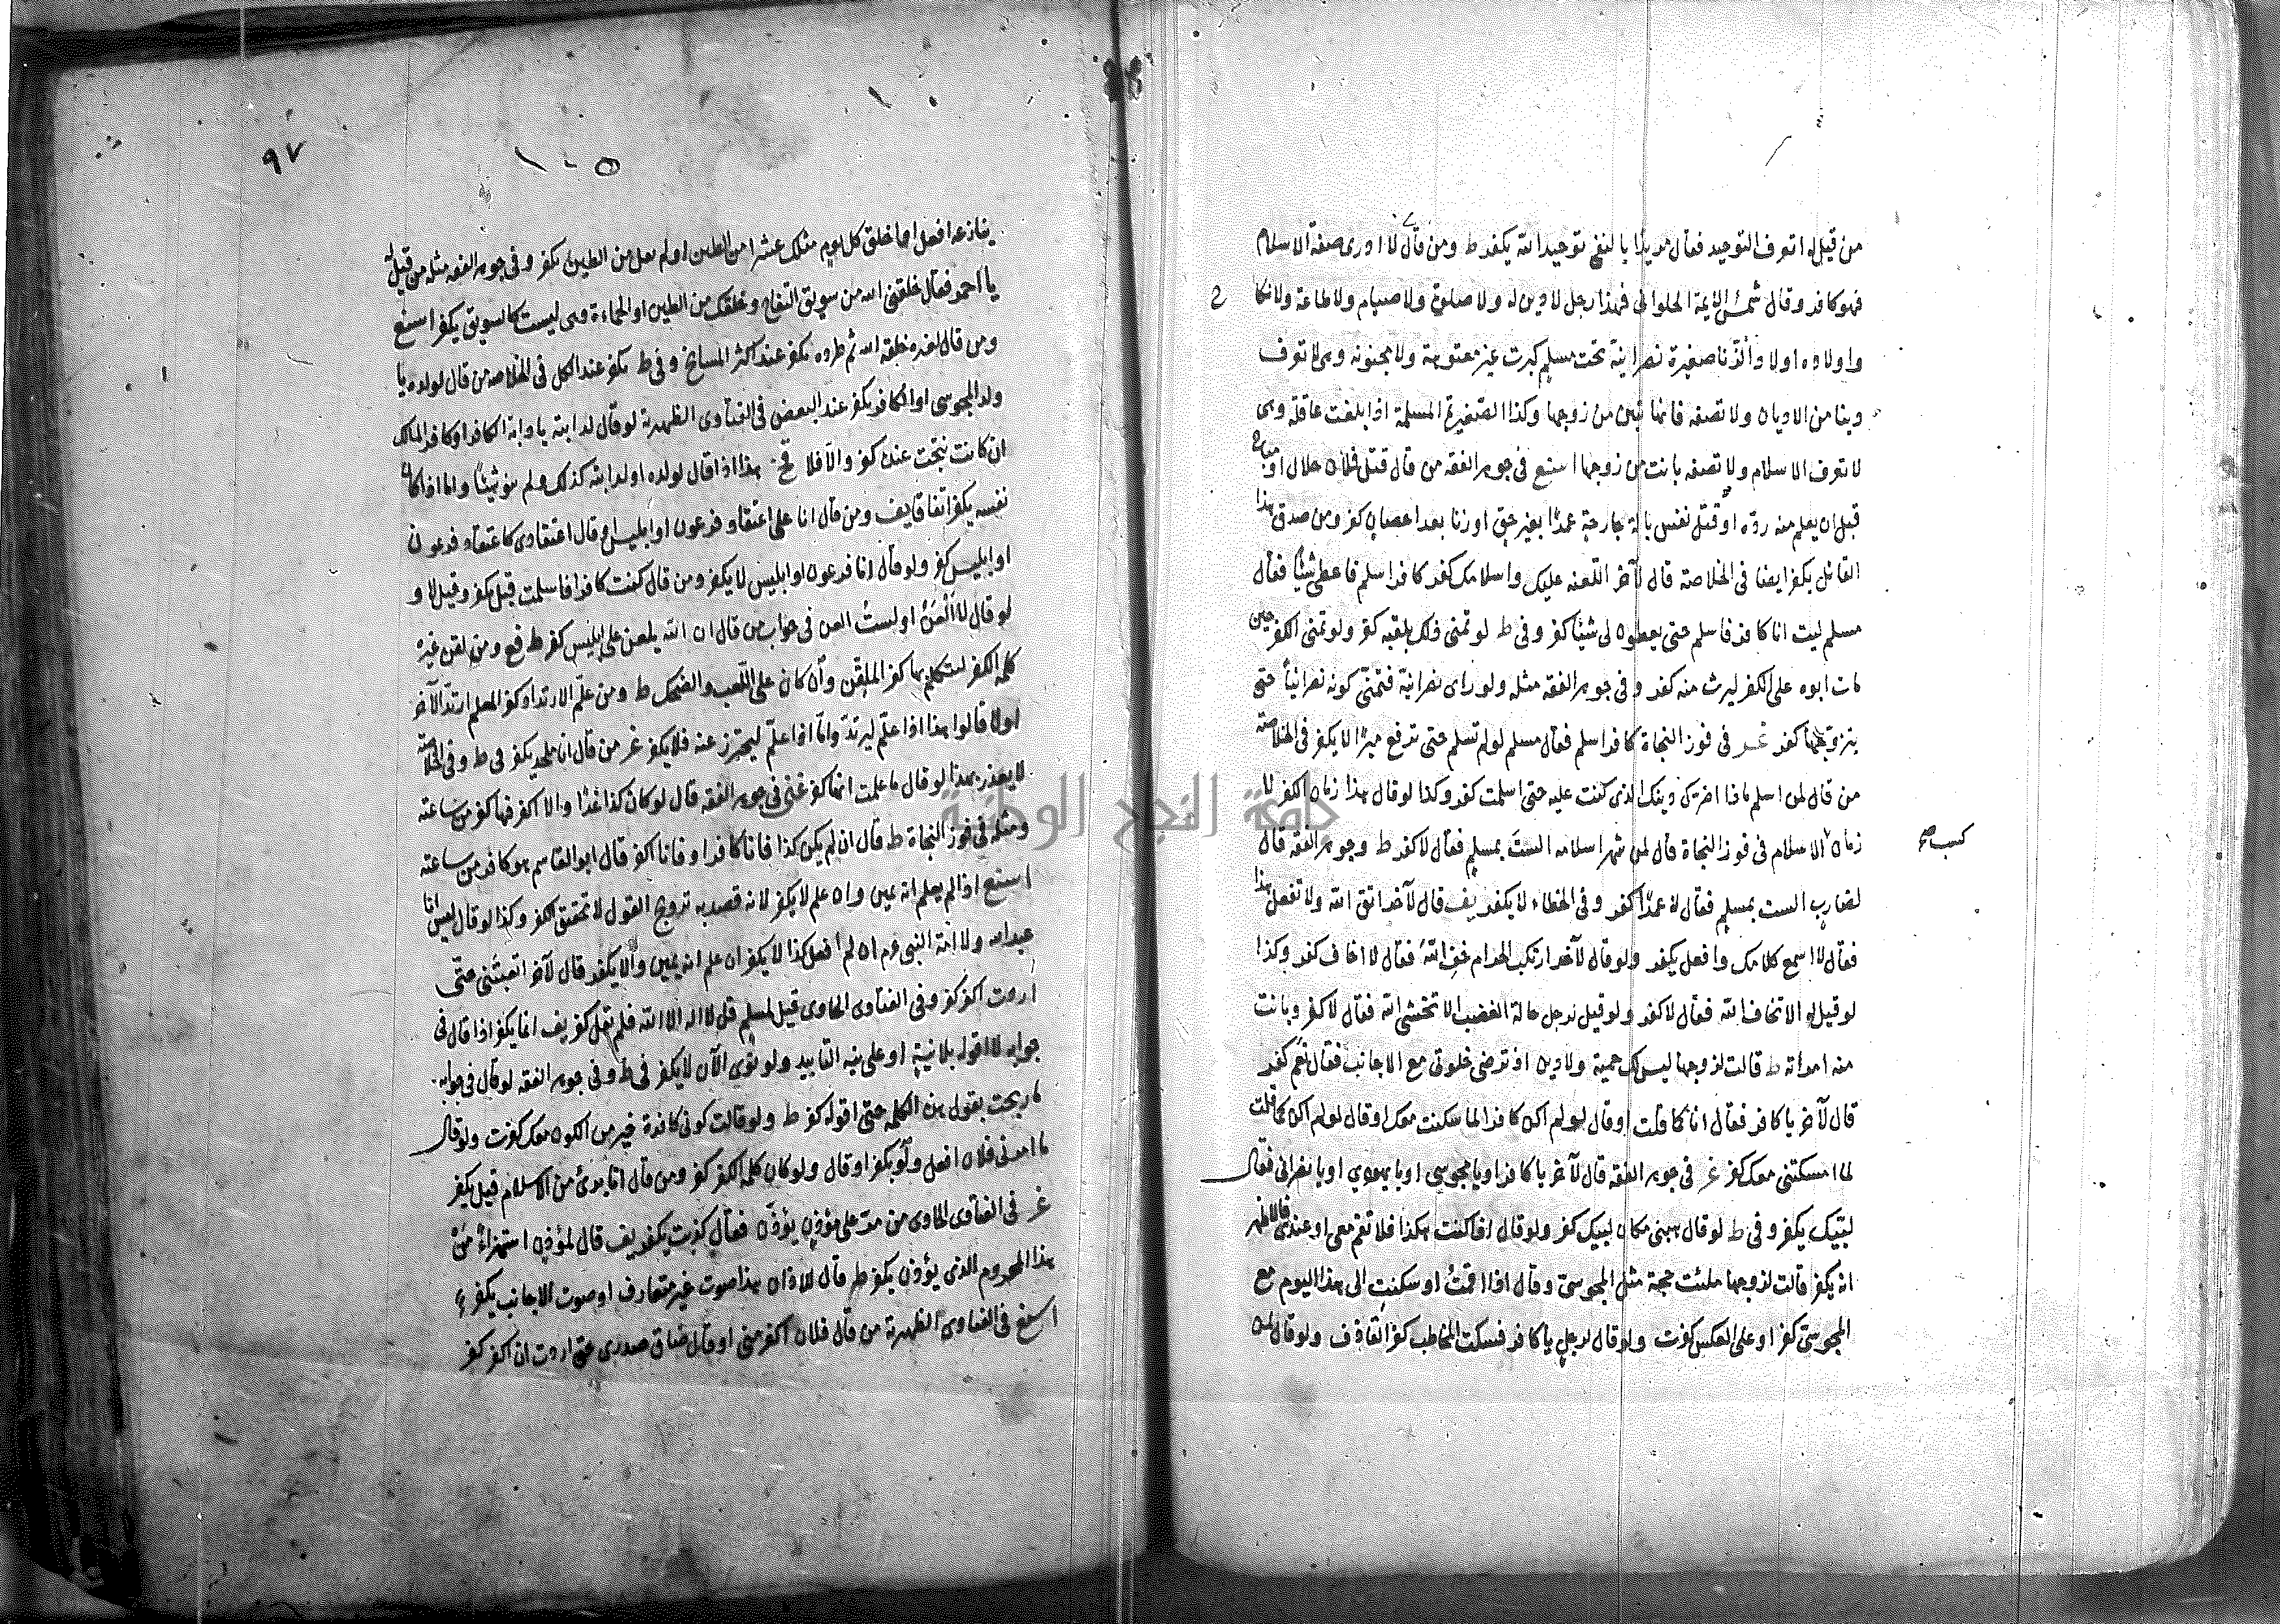 من قيل له اتعرف التوحيد فقال مريدا بالنفي توحيد الله يكفر ط ومن قال لا ادرى صفة الاسلام
فهو كافر وقال شمس الائمة الحلوانى فهذا رجل لا دين له ولا صلوة ولا صيام ولا طاعة ولا نكاح
واولاده اولاد الزنا صغيرة نصرانية تحت مسلم كبرت غير معتوهة ولا مجنونة وهى لا تعرف
دينا من الاديان ولا تصفه فانها تبين من زوجها وكذا الصغيرة المسلمة اذا بلغت عاقلة وهى
لا تعرف الاسلام ولا تصفه بانت من زوجها فى جوهر الفقه من قال قتل فلان حلال او مباح
قبل ان يعلم منه ردة او قتل نفس بالة جارحة عمدا بغير حق او زنا بعد احصان كفر ومن صدق هذا
القائل يكفر ايضا فى الخلاصة قال لآخر اللعنة عليك واسلامك كفر كافر اسلم فاعطى شيئا فقال
مسلم ليت انا كافر فاسلم حتى يعطون لى شيئا كفر وفى ط لو تمنى ذلك بقلبه كفر ولو تمنى الكفر حين
مات ابوه على الكفر ليرث منه كفر وفى جوهر الفقه مثله ولو راى نصرانية فتمنى كونه نصرانيا حتى
يتزوجها كفر فى فوز النجاة كافر اسلم فقال مسلم لو لم تسلم حتى ترفع ميراثا لا يكفر فى الخلاصة
من قال لمن اسلم ماذا اضرك دينك الذى كنت عليه حتى اسلمت كفر وكذا لو قال هذا زمان الكفر لا
كسب
زمان الاسلام فى فوز النجاة قال لمن شهر اسلامه الست بمسلم فقال لا كفر ط وجوهر الفقه قال
لضارب الست بمسلم فقال لا عمدا كفر وفى الخطاء لا يكفر قال لآخر اتق الله ولا تفعل هذا
فقال لا اسمع كلامك وافعل يكفر ولو قال لآخر ارتكب الحرام خف الله فقال لا اخاف كفر وكذا
لو قيل له الا تخاف الله فقال لا كفر ولو قيل لرجل حالة الغضب الا تخشى الله فقال لا كفر وبانت
منه امرأته ط قالت لزوجها ليس لك حمية ولا دين اذ ترضى خلوتى مع الاجانب فقال نعم كفر
قال لآخر يا كافر فقال انا كما قلت او قال لو لم اكن كافرا لما سكنت معك او قال لو لم اكن كما قلت
لما امسكتنى معك كفر فى جوهر الفقه قال لآخر يا كافر او يا مجوسى او يا يهودي او يا نصرانى فقال
لبيك يكفر وفى ط لو قال هبنى مكان لبيك كفر ولو قال اذا كنت هكذا فلا تقم معى او عندى فالاظهر
انه يكفر قالت لزوجها مثل المجوسى وقال اذا اقمت او سكنت الى هذا اليوم مع
المجوسى كفر او على العكس كفرت ولو قال لرجل يا كافر فسكت المخاطب كفر القاذف ولو قال لمن
٩٧
١٠٥
ينازعه افعل اما خلق كل يوم مثلك عشرا من الطين او لم يقل من الطين يكفر وفى جوهر الفقه مثله من قيل له
يا احمر فقال خلقنى الله من سويق التفاح وخلقك من الطين او الحماءة وهى ليست كالسويق يكفر
ومن قال لغيره خلقه الله ثم طرده يكفر عند اكثر المشايخ وفى ط يكفر عند الكل فى الخلاصة من قال لولده يا
ولد المجوسى او الكافر يكفر عند البعض فى الفتاوى الظهيرية لو قال لدابته يا دابة الكافر او كافر المالك
ان كانت نتجت عنده كفر والا فلا هذا اذا قال لولده او لدابته كذلك ولم ينو شيئا واما اذا كان
نفسه يكفر اتفاقا ومن قال انا على اعتقاد فرعون او ابليس او قال اعتقادى كاعتقاد فرعون
او ابليس كفر ولو قال انا فرعون او ابليس لا يكفر ومن قال كنت كافرا فاسلمت قيل يكفر وقيل لا و
لو قال لا العن او لست العن فى جواب من قال ان الله يلعن على ابليس كفر ومن لقن غيره
كلمة الكفر ليتكلم بها كفر الملقن وان كان على اللعب والضحك ط ومن علم الارتداد كفر المعلم ارتد الآخر
اولا قالوا هذا اذا علم ليرتد واما اذا علم ليحترز عنه فلا يكفر من قال انا ملحد يكفر فى ط وفى الخلاصة
لا يعذر بهذا لو قال ما علمت انها كفر فى جوهر الفقه قال لو كان كذا غدا والا اكفر فها كفر من ساعته
ومثله فى فوز النجاة ط قال ان لم يكن كذا فانا كافر او فانا اكفر قال ابو القاسم هو كافر من ساعته
اذا لم يعلم انه يمين وان علم لا يكفر لانه قصد به ترويج القول لا تحقيق الكفر وكذا لو قال ليس انا
عبد الله ولا امة النبى عم ان لم افعل كذا لا يكفر ان علم انه يمين والا يكفر قال لآخر اتعبتنى حتى
اردت اكفر كفر وفى الفتاوى الحاوى قيل لمسلم قل لا اله الا الله فلم يقل كفر انما يكفر اذا قال فى
جوابه لا اقوله بلا نية او على نية التأبيد ولو نوى الآن لا يكفر فى ط وفى جوهر الفقه لو قال فى جوابه
ما ربحت بقول هذه الكلمة حتى اقوله كفر ط ولو قالت كونى كافرة خير من الكون معك كفرت ولو قال
ما امرنى فلان افعل ولو بكفر او قال ولو كان كلمة الكفر كفر ومن قال انا برئ من الاسلام قيل يكفر
فى الفتاوى الحاوى من مر على مؤذن يؤذن فقال كذبت يكفر قال لمؤذن استهزاء من
هذا المحروم الذى يؤذن يكفر ط قال للاذان هذا صوت غير متعارف او صوت الاجانب يكفر
فى الفتاوى الظهيرية من قال فلان اكفر منى او قال ضاق صدرى حتى اردت ان اكفر كفر
جامعة النجاح الوطنية